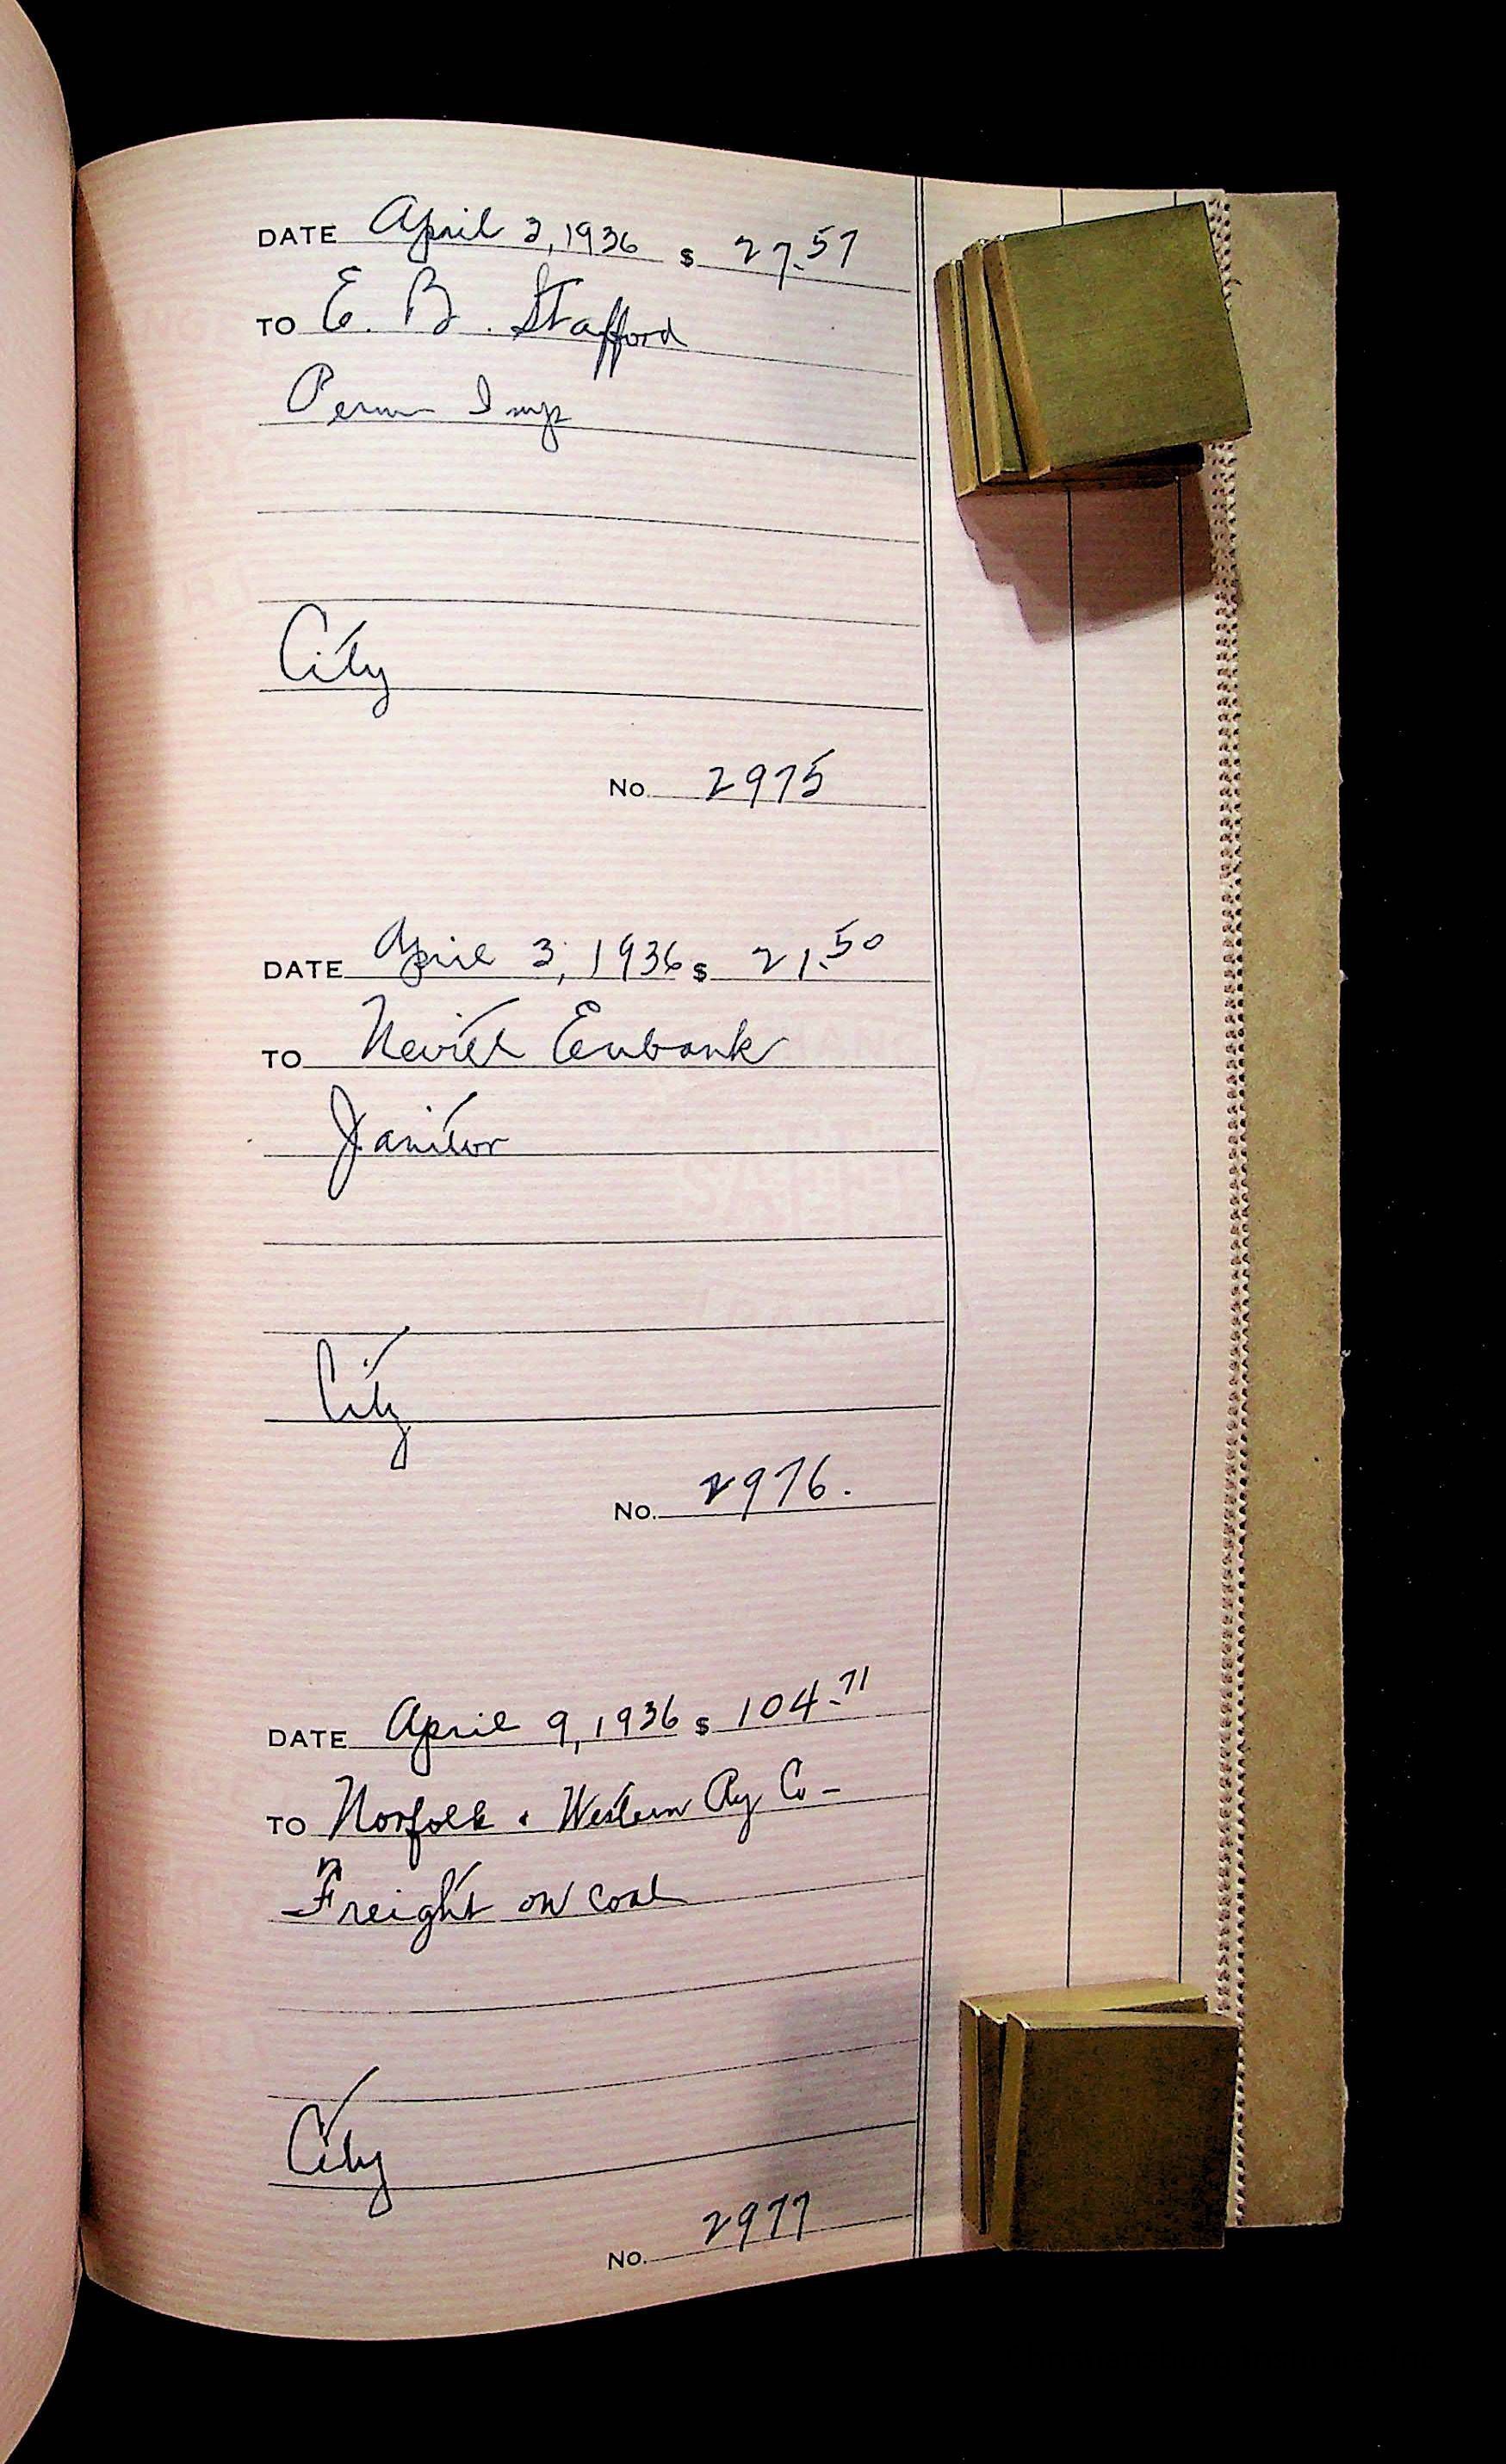 DATE April 3, 1936 $ 27.57
TO E. B. Stafford
Perm Imp
City
No. 2975
DATE April 3, 1936 $ 21.50
TO Eubank
Janitor
City
No. 2976.
DATE April 9, 1936 $ 104.71
TO Norfolk & Western Ry Co -
Freight on coal
City
No. 2977